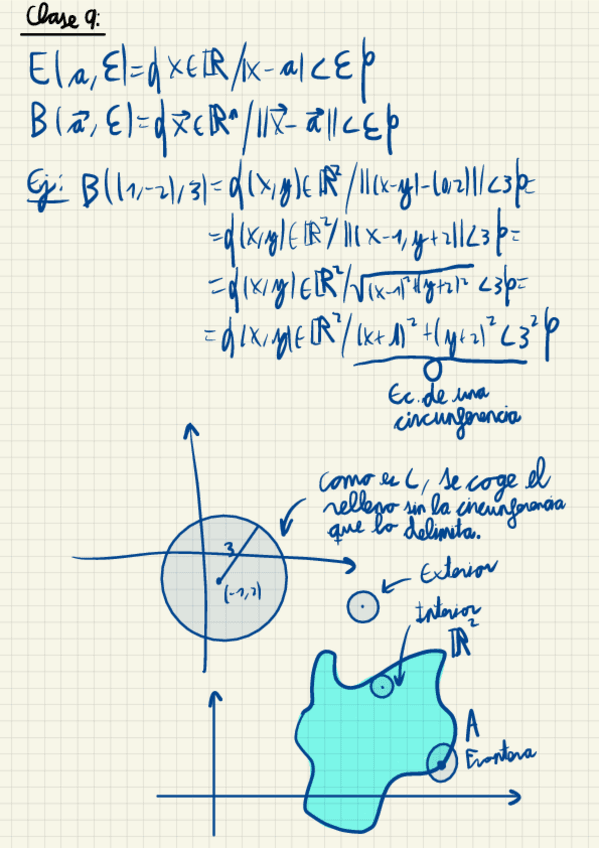 Clase 9:
E(a, ε)={x∈ℝ/|x-a|<ε}
B(a⃗, ε)={x⃗∈ℝⁿ/||x⃗-a⃗||<ε}
Ej: B((1,-2),3)={(x,y)∈ℝ²/||(x-y)-(0,2)||<3}=
={(x,y)∈ℝ²/||(x-1, y+2)||<3}=
={(x,y)∈ℝ²/√(x-1)²+(y+2)² <3}=
={(x,y)∈ℝ²/(x+1)²+(y+2)²<3²}
Ec. de una
circunferencia
Como es <, se coge el
relleno sin la circunferencia
que lo delimita.
3
(-1,2)
Exterior
Interior
ℝ²
A
Frontera